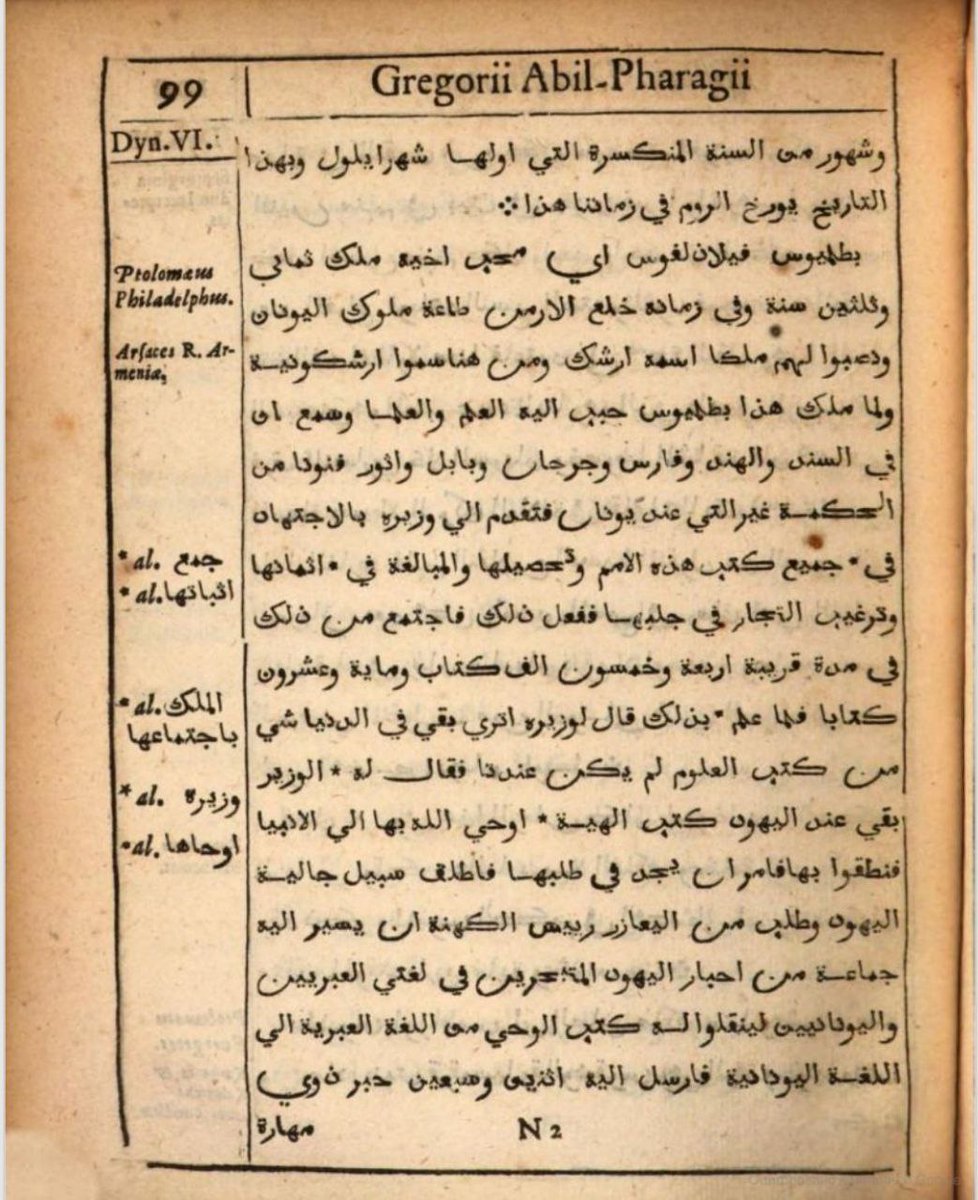 99
Gregorii Abil-Pharagii
Dyn.VI.
وشهور من السنة المنكسرة التي اولها شهرايلول وبهذا
التاريخ يورخ الروم في زماننا هذا
بطلميوس فيلاذلفوس اي محب اخيه ملك ثماني
Ptolomæus
Philadelphus.
وثلثين سنة وفي زمانه خلع الارمن طاعة ملوك اليونان
Arsaces R. Ar-
meniæ,
ونصبوا لهم ملكا اسمه ارشك ومن هناسموا ارشكونية
ولما ملك هذا بطلميوس حبب اليه العلم والعلما وسمع ان
في السند والهند وفارس وجرجان وبابل واثور فنونا من
الحكمة غيرالتي عند يونان فتقدم الي وزيره بالاجتهاد
في * جميع كتب هذه الامم وتحصيلها والمبالغة في * اثمانها
* al. جمع
* al. اثباتها
وترغيب التجار في جلبها ففعل ذلك فاجتمع من ذلك
في مدة قريبة اربعة وخمسون الف كتاب وماية وعشرون
كتابا فلما علم * بذلك قال لوزيره اتري بقي في الدنيا شي
* al. الملك
باجتماعها
من كتب العلوم لم يكن عندنا فقال له * الوزير
* al. وزيره
بقي عند اليهود كتب الهية * اوحي الله بها الي الانبيا
* al. اوحاها
فنطقوا بها فامر ان يجد في طلبها فاطلق سبيل جالية
اليهود وطلب من اليعازر رييس الكهنة ان يسير اليه
جماعة من احبار اليهود المتبحرين في لغتي العبريين
واليونانيين لينقلوا له كتب الوحي من اللغة العبرية الي
اللغة اليونانية فارسل اليه اثنين وسبعين حبر ذوي
N 2
مهارة